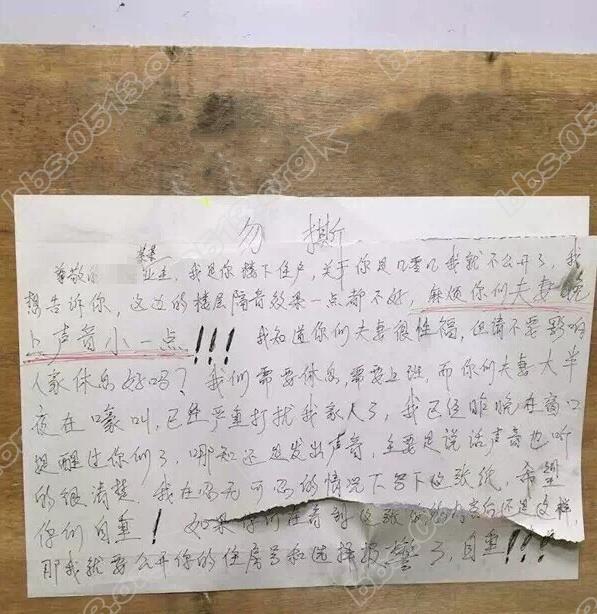 勿撕
某某
尊敬的 业主，我是你楼下住户，关于你是几零几我就不公开了，我
想告诉你，这边的楼层隔音效果一点都不好，麻烦你们夫妻晚
上声音小一点!!! 我知道你们夫妻很性福，但请不要影响
人家休息好吗？我们需要休息，需要上班，而你们夫妻大半
夜在嚎叫，已经严重打扰我家人了，我已经昨晚在窗口
提醒过你们了，哪知还是发出声音，主要是说话声音也听
的很清楚，我在忍无可忍的情况下写下这张纸，希望
你们自重！如果你们在看到这张纸的内容后还是这样，
那我就要公开你的住房号和选择报警了，自重!!!
bbs.0513.org